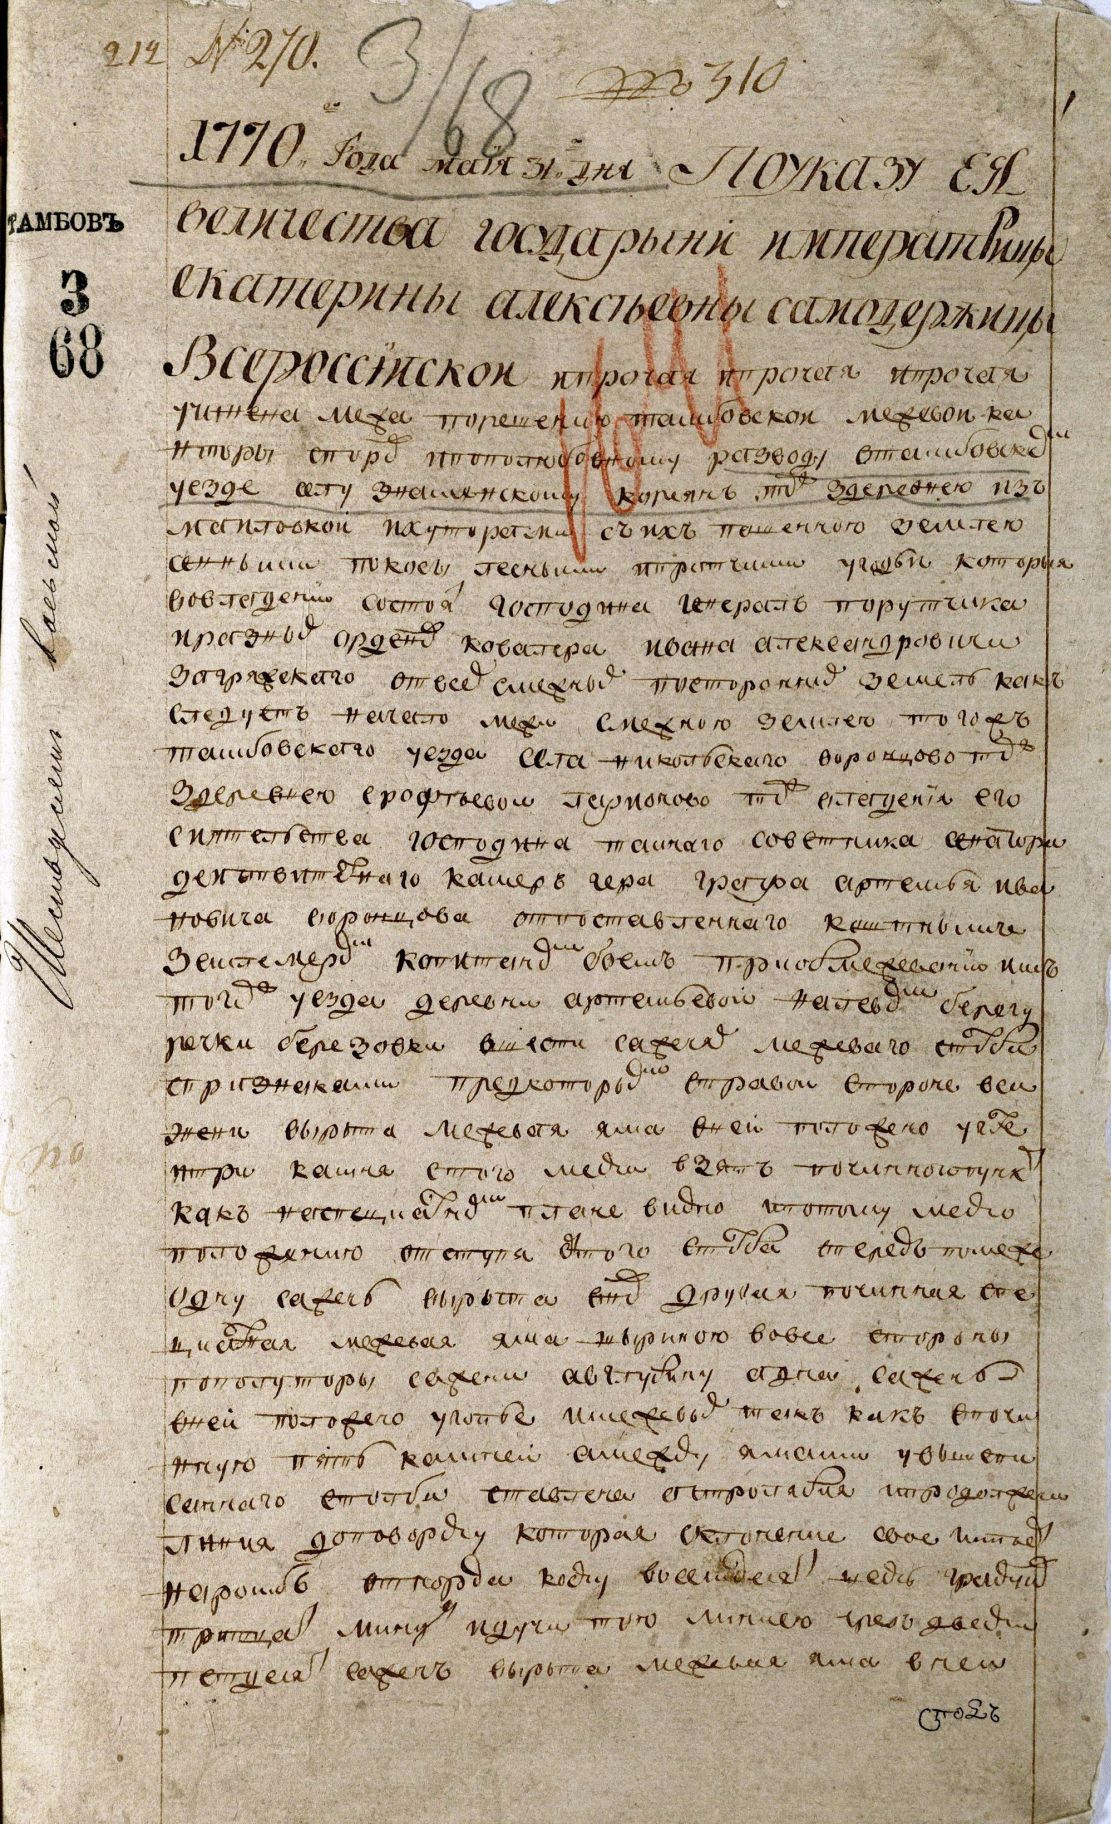 212 № 270.
3/68
310
1770 года маия 31 дня По указу ЕЯ
величества государыни императрицы
екатерины алексѣевны самодержицы
Всероссiйской ипрочая ипрочая ипрочая
учинена межа порешению танбовской межевой кан
торы спорд иполюбовному разводу втанбовском
уезде селу знаменскому корианъ тож здеревнею изъ
маиловкой ихуторами съ ихъ пашенною землею
сенными покосы лесными ипротчими угодьи которыя
вовладенiи состоя господина генералъ порутчика
иразных орденов ковалера ивана александровича
загряжскаго отвсех смежных посторонних земель какъ
следуетъ начало межи смежною землею тогожъ
танбовскаго уезда села никольскаго воронцово тож
здеревнею ерофѣевой ларионово тож владения его
сиятельства господина тайнаго советника сенатора
действителнаго камеръ гера графа артемья ива
новича воронцова отпоставленнаго
землемером капитаном боемъ приобмежеванiи имъ
того уезда деревни артемьевой налевом берегу
речки березовки вшести сажен межеваго столба
спризнаками предкоторым вправой стороне
вырыта межевая яма вней положено уголе
итри камня стого места взятъ починной пункт
какъ наспециалном плане видно ипотому место
положению отступя от того столба впередъ помеже
одну сажень вырыта другая починная спе
циалная межевая яма шириною вовсе стороны
пополуторы сажени авглубину одна сажень
вней положено уголье имежевых такъ какъ впочин
ную пять камней амежду ямами увышепи
саннаго столба ставлена астролябия ипродолжена
линия доповороту которая склонение свое имѣет
нарумбъ отнорда косту восемдесят шесть градусов
тритцат минут идучи тою линиею чрезъ двести
петдесят саженъ вырыта межевая яма вней
столъ
ТАМБОВЪ
3
68
Шестьдесят восьмой
по